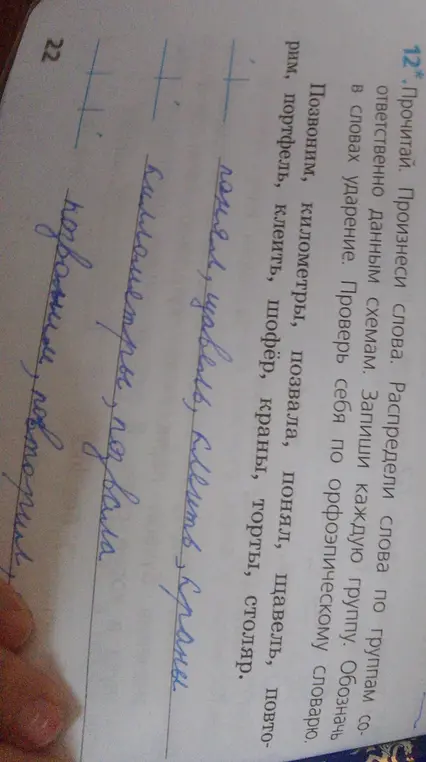 12*. Прочитай. Произнеси слова. Распредели слова по группам со-
ответственно данным схемам. Запиши каждую группу. Обозначь
в словах ударение. Проверь себя по орфоэпическому словарю.
Позвоним, километры, позвала, понял, щавель, повто-
рим, портфель, клеить, шофёр, краны, торты, столяр.
понял, щавель, клеить, краны
киллометры, позвала
позвоним, повторим,
22